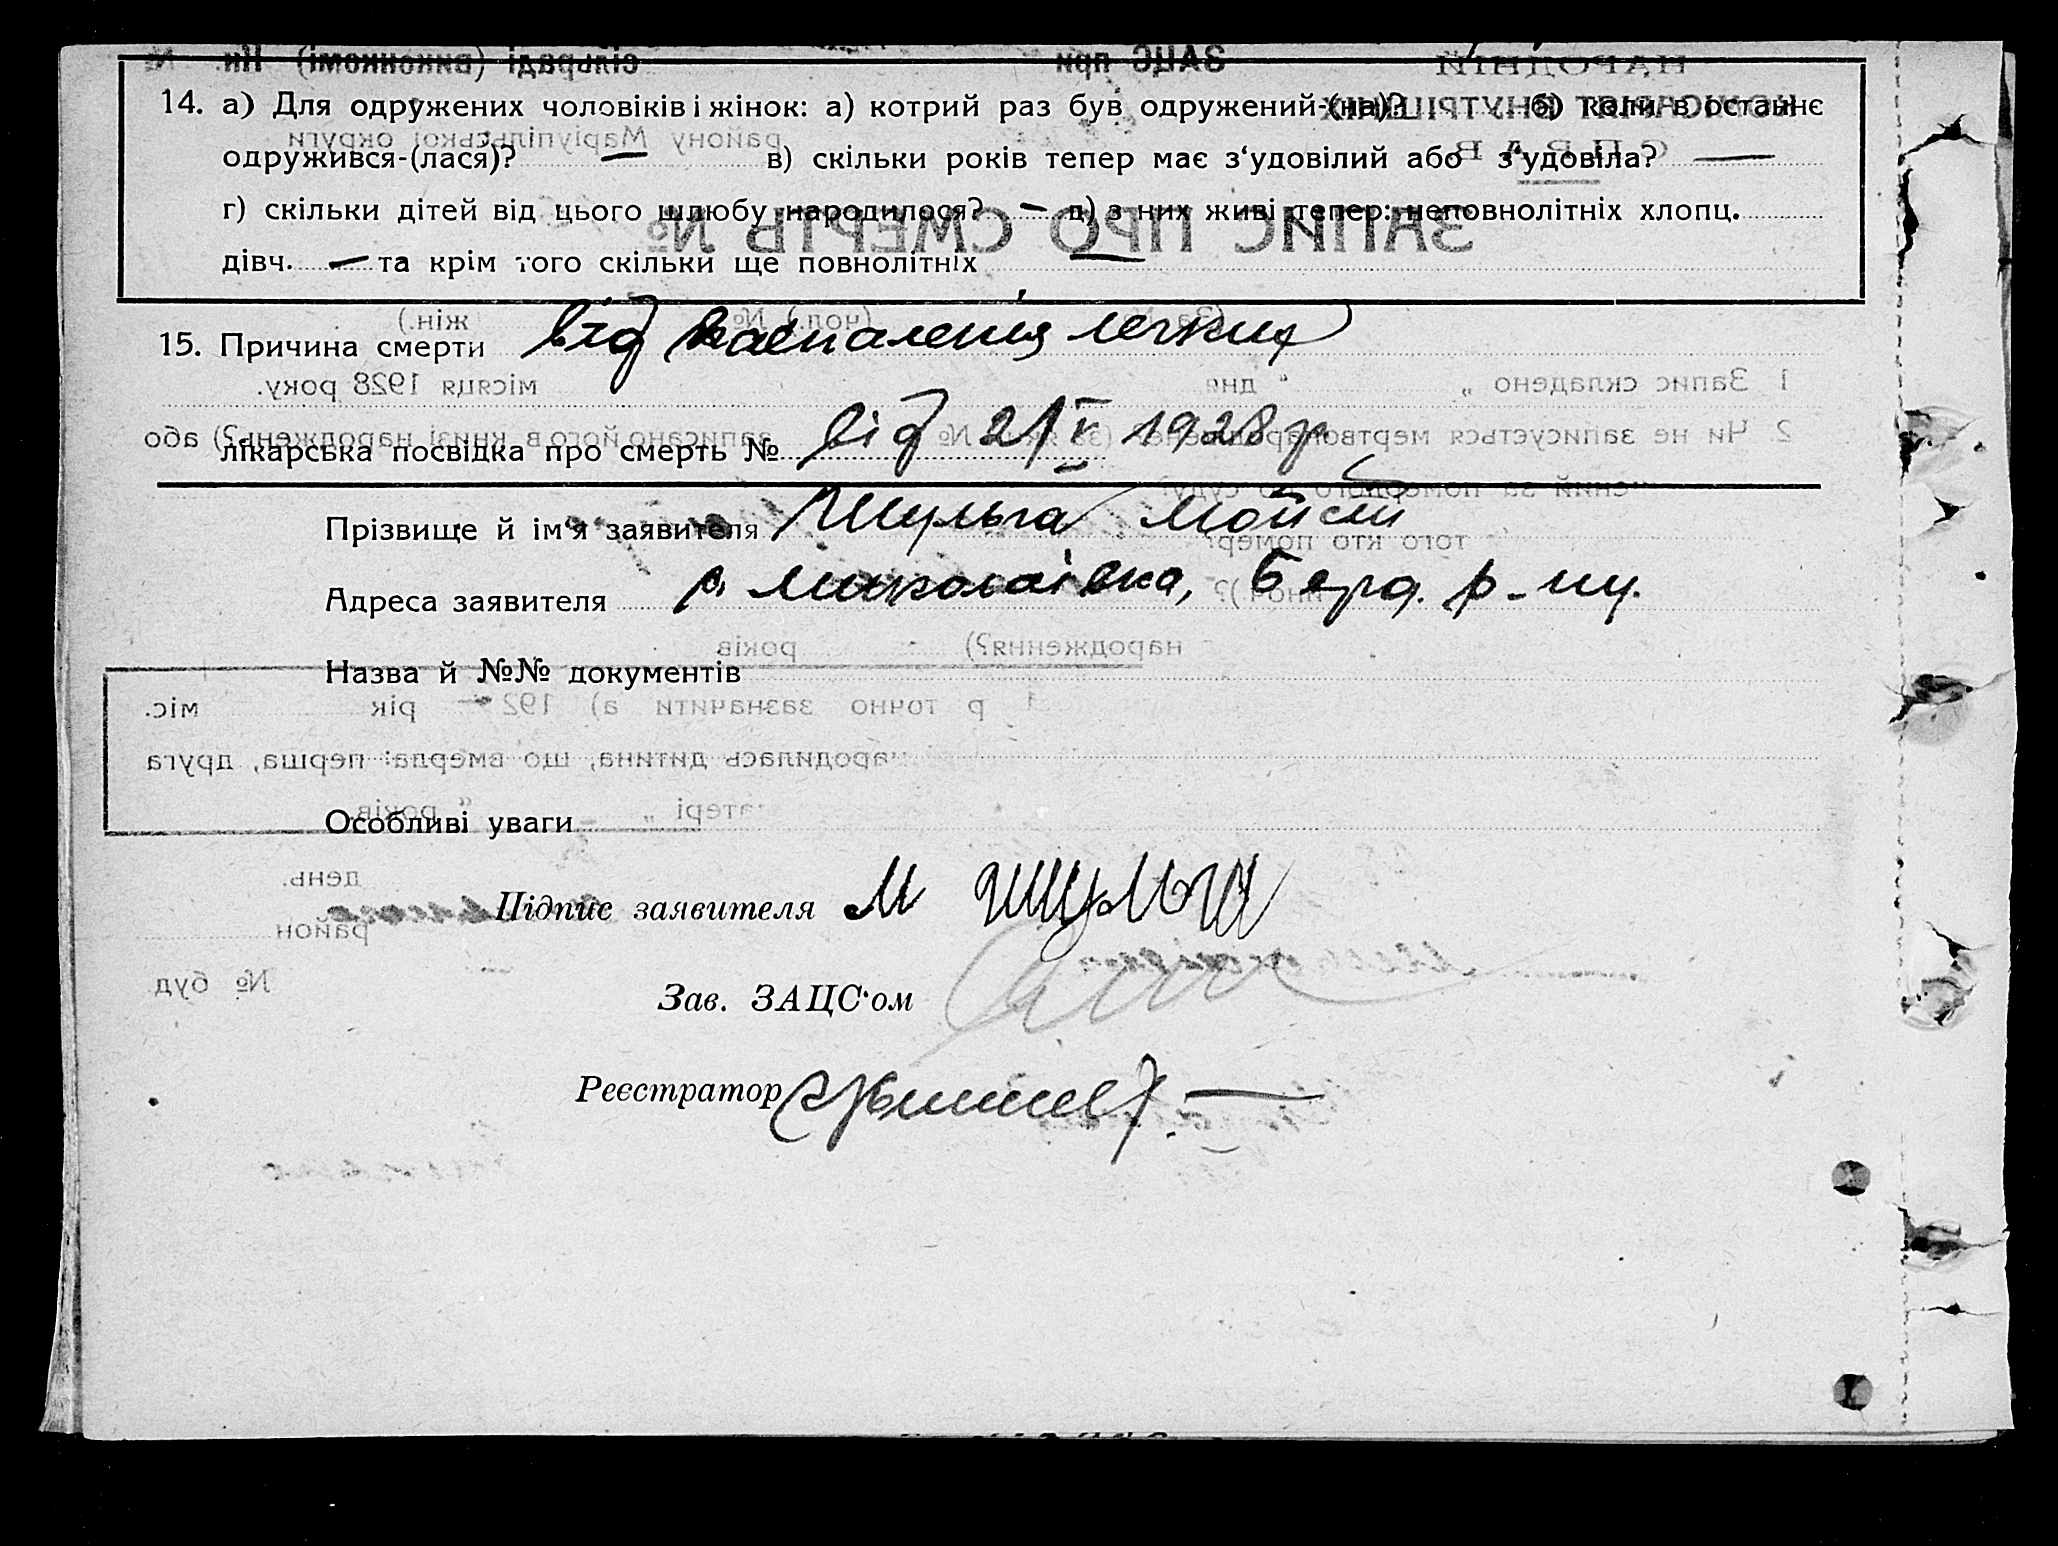 14. а) Для одружених чоловіків і жінок: а) котрий раз був одружений-(на)? б) коли в останнє
одружився-(лася)? — в) скільки років тепер має з‘удовілий або з‘удовіла? —
г) скільки дітей від цього шлюбу народилося? — д) з них живі тепер: неповнолітніх хлопц.
дівч. — та крім того скільки ще повнолітніх —
15. Причина смерти від воспаления легких
лікарська посвідка про смерть № від 21/V 1928 р
Прізвище й ім‘я заявителя Шульга Мойсей
Адреса заявителя с. Миколаївка, Берд. р-ну.
Назва й №№ документів
Особливі уваги
Підпис заявителя М Шульга
Зав. ЗАЦС‘ом
Реєстратор